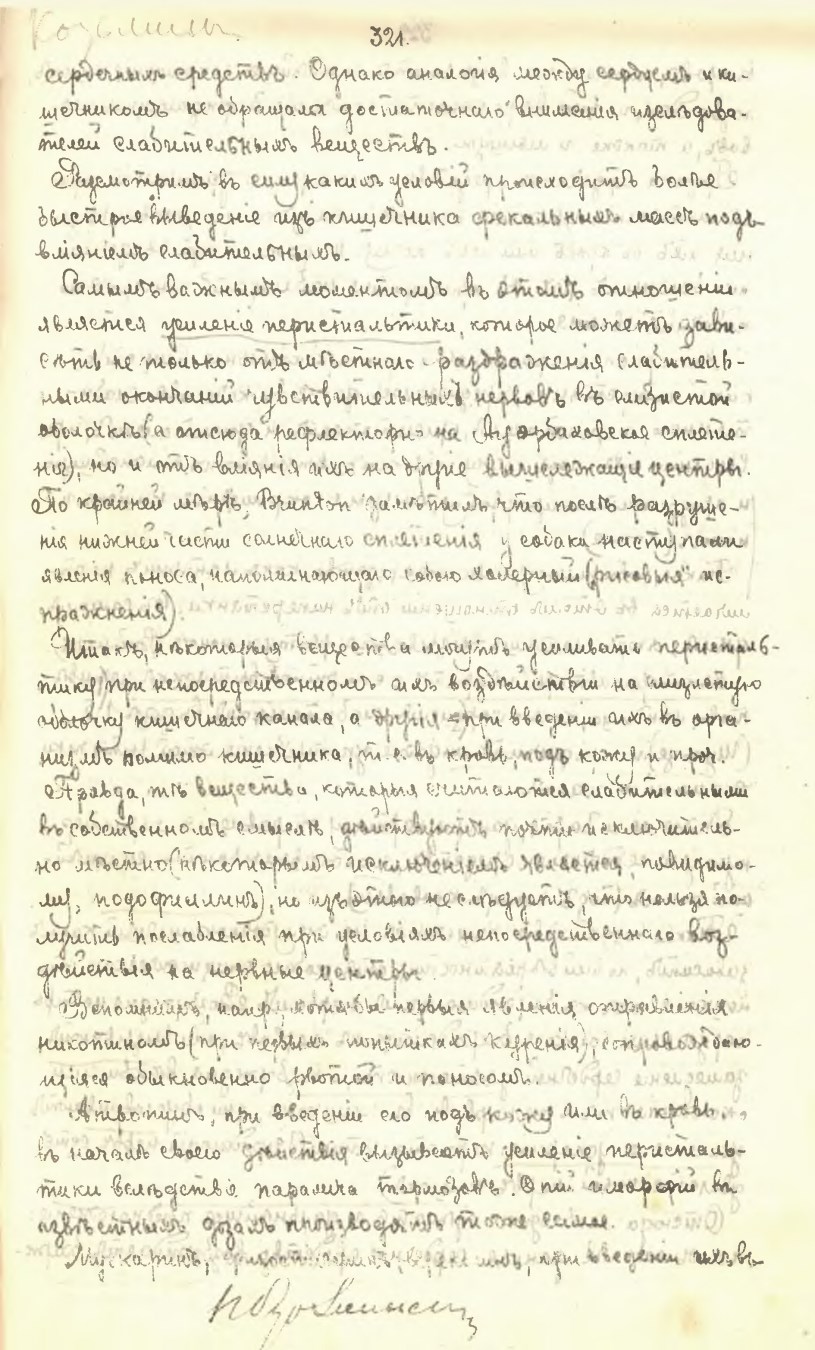 321.
сердечныхъ средствъ. Однако аналогія между сердцемъ и ки-
шечникомъ не обращала достаточнаго вниманія изслѣдова-
телей слабительныхъ веществъ.
Разсмотримъ въ силу какихъ условій происходитъ болѣе
быстрое выведеніе изъ кишечника фекальныхъ массъ подъ
вліяніемъ слабительныхъ.
Самымъ важнымъ моментомъ въ этомъ отношеніи
является усиленіе перистальтики, которое можетъ зави-
сѣть не только отъ мѣстнаго раздраженія слабитель-
ными окончаній чувствительныхъ нервовъ въ слизистой
оболочкѣ (а отсюда рефлектори- на Ауэрбаховское сплете-
ніе), но и отъ вліянія ихъ на другіе вышележащіе центры.
По крайней мѣрѣ, Brunton замѣтилъ, что послѣ разруше-
нія нижней части солнечнаго сплетенія у собаки наступали
явленія поноса, напоминающаго собою холерный (рисовыя" ис-
пражненія).
Итакъ, нѣкоторыя вещества могутъ усиливать перисталь-
тику при непосредственномъ ихъ воздѣйствіи на слизистую
оболочку кишечнаго канала, а другія - при введеніи ихъ въ орга-
низмъ помимо кишечника, т.е. въ кровь, подъ кожу и проч.
Правда, тѣ вещества, которыя считаются слабительными
въ собственномъ смыслѣ, дѣйствуютъ почти исключитель-
но мѣстно (нѣкоторымъ исключеніемъ является, повидимо-
му, подофиллинъ), но изъ этого не слѣдуетъ, что нельзя по-
лучить послабленія при условіяхъ непосредственнаго воз-
дѣйствія на нервные центры
Вспомнимъ, напр., хотя бы первыя явленія отравленія
никотиномъ (при первыхъ попыткахъ куренія), сопровождаю-
щіяся обыкновенно рвотой и поносомъ.
Атропинъ, при введеніи его подъ кожу или въ кровь,
въ началѣ своего дѣйствія вызываетъ усиленіе перисталь-
тики вслѣдствіе паралича тормозовъ. Опій и морфій въ
извѣстныхъ дозахъ производятъ тоже самое.
Мускаринъ, при введеніи ихъ въ